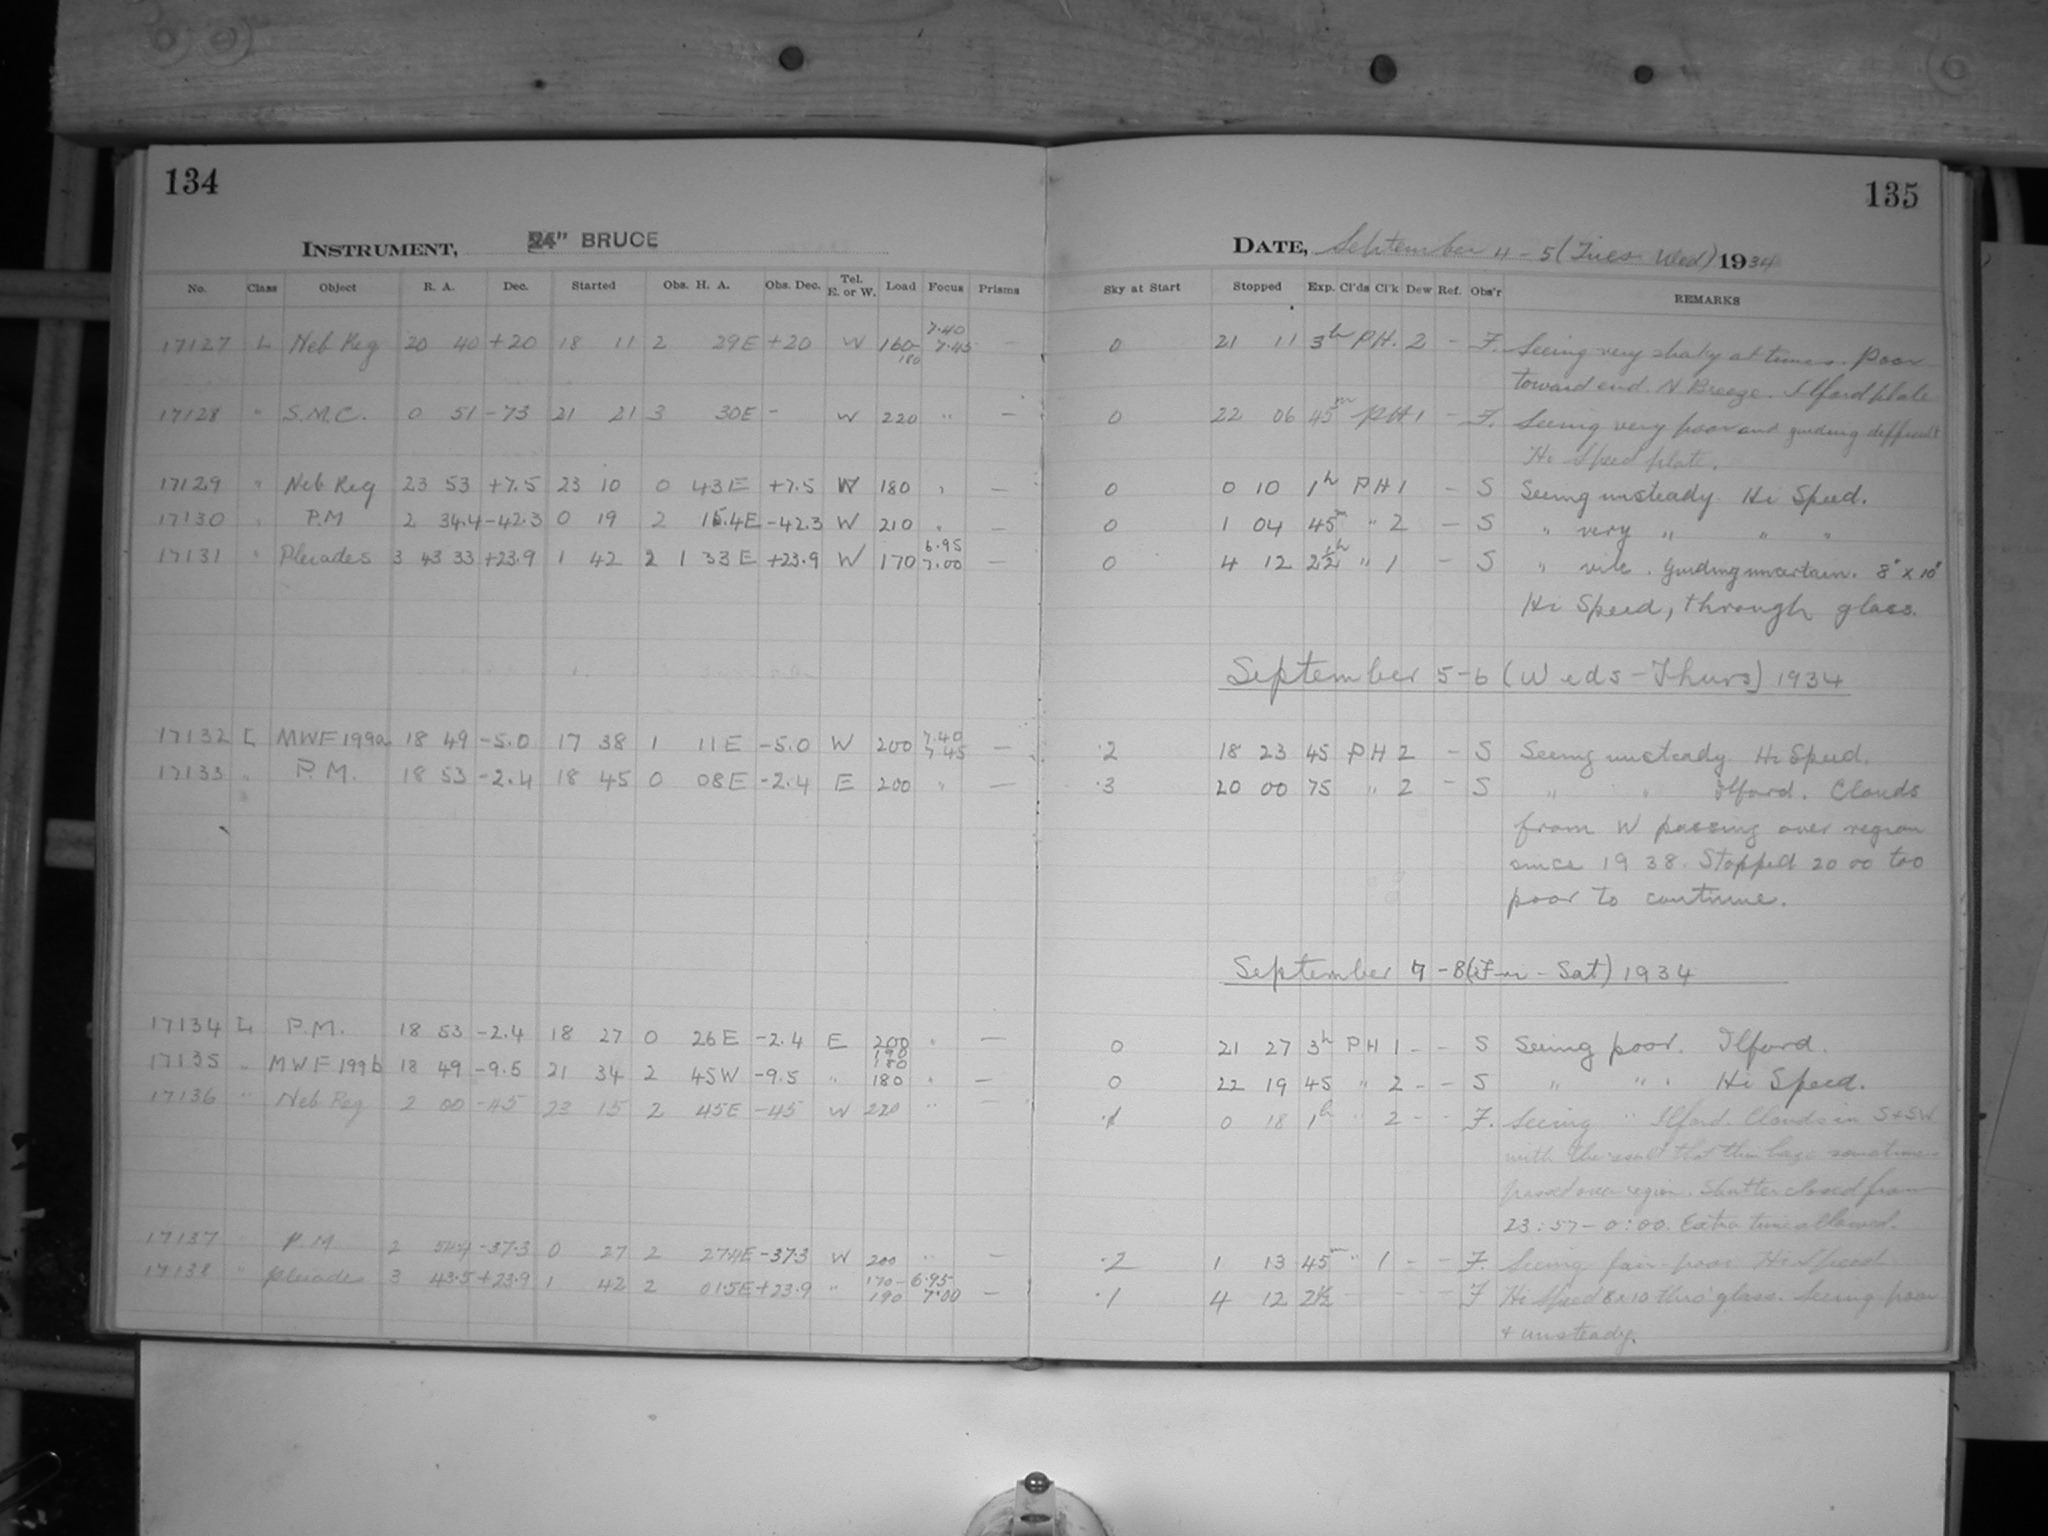 134
INSTRUMENT, 24" BRUCE
No. Class Object R. A. Dec. Started Obs. H. A. Obs. Dec. Tel. E. or W. Load Focus Prisms
17127 L Neb Reg 20 40 +20 18 11 2 29E +20 W 160-180 7.40 7.45 –
17128 " S.M.C. 0 51 -73 21 21 3 30E - W 220 " –
17129 " Neb Reg 23 53 +7.5 23 10 0 43E +7.5 W 180 " –
17130 " P.M 2 34.4 -42.3 0 19 2 15.4E -42.3 W 210 " –
17131 " Pleiades 3 43 33 +23.9 1 42 2 1 33E +23.9 W 170 6.95 7.00 –
17132 L MWF 199a 18 49 -5.0 17 38 1 11E -5.0 W 200 7.40 7.45 –
17133 " P.M. 18 53 -2.4 18 45 0 08E -2.4 E 200 " –
17134 L P.M. 18 53 -2.4 18 27 0 26E -2.4 E 200 190 180 " –
17135 " MWF 199b 18 49 -9.5 21 34 2 45W -9.5 " 180 " –
17136 " Neb Reg 2 00 -45 23 15 2 45E -45 W 220 " –
17137 " P.M 2 54.4 -37.3 0 27 2 27.4E -37.3 W 200 " –
17138 " Pleiades 3 43.5 +23.9 1 42 2 01.5E +23.9 " 170-190 6.95 7.00 –
135
DATE, September 4-5 (Tues Wed) 1934
Sky at Start Stopped Exp. Cl'ds Cl'k Dew Ref. Obs'r REMARKS
0 21 11 3h P H. 2 - F. Seeing very shaky at times. Poor
toward end. N Breeze. Ilford plate
0 22 06 45m P H 1 - F. Seeing very poor and guiding difficult
Hi Speed plate.
0 0 10 1h P H 1 - S Seeing unsteady Hi Speed.
0 1 04 45m " 2 - S " very " " "
0 4 12 2½h " 1 - S " vile. Guiding uncertain. 8" x 10"
Hi Speed, through glass.
September 5-6 (Weds-Thurs) 1934
.2 18 23 45 P H 2 - S Seeing unsteady Hi Speed.
.3 20 00 75 " 2 - S " " Ilford. Clouds
from W passing over region
since 19 38. Stopped 20 00 too
poor to continue.
September 7-8 (Fri-Sat) 1934
0 21 27 3h P H 1 - - S Seeing poor. Ilford.
0 22 19 45 " 2 - - S " " . Hi Speed.
.1 0 18 1h " 2 - - F. Seeing " Ilford. Clouds in S+SW
with the result that thin haze sometimes
passed over region. Shutter closed from
23:57-0:00. Extra time allowed.
.2 1 13 45m " 1 - - F. Seeing fair-poor Hi Speed
.1 4 12 2½ - - - - F Hi Speed 8x10 thro' glass. Seeing poor
+ unsteady.